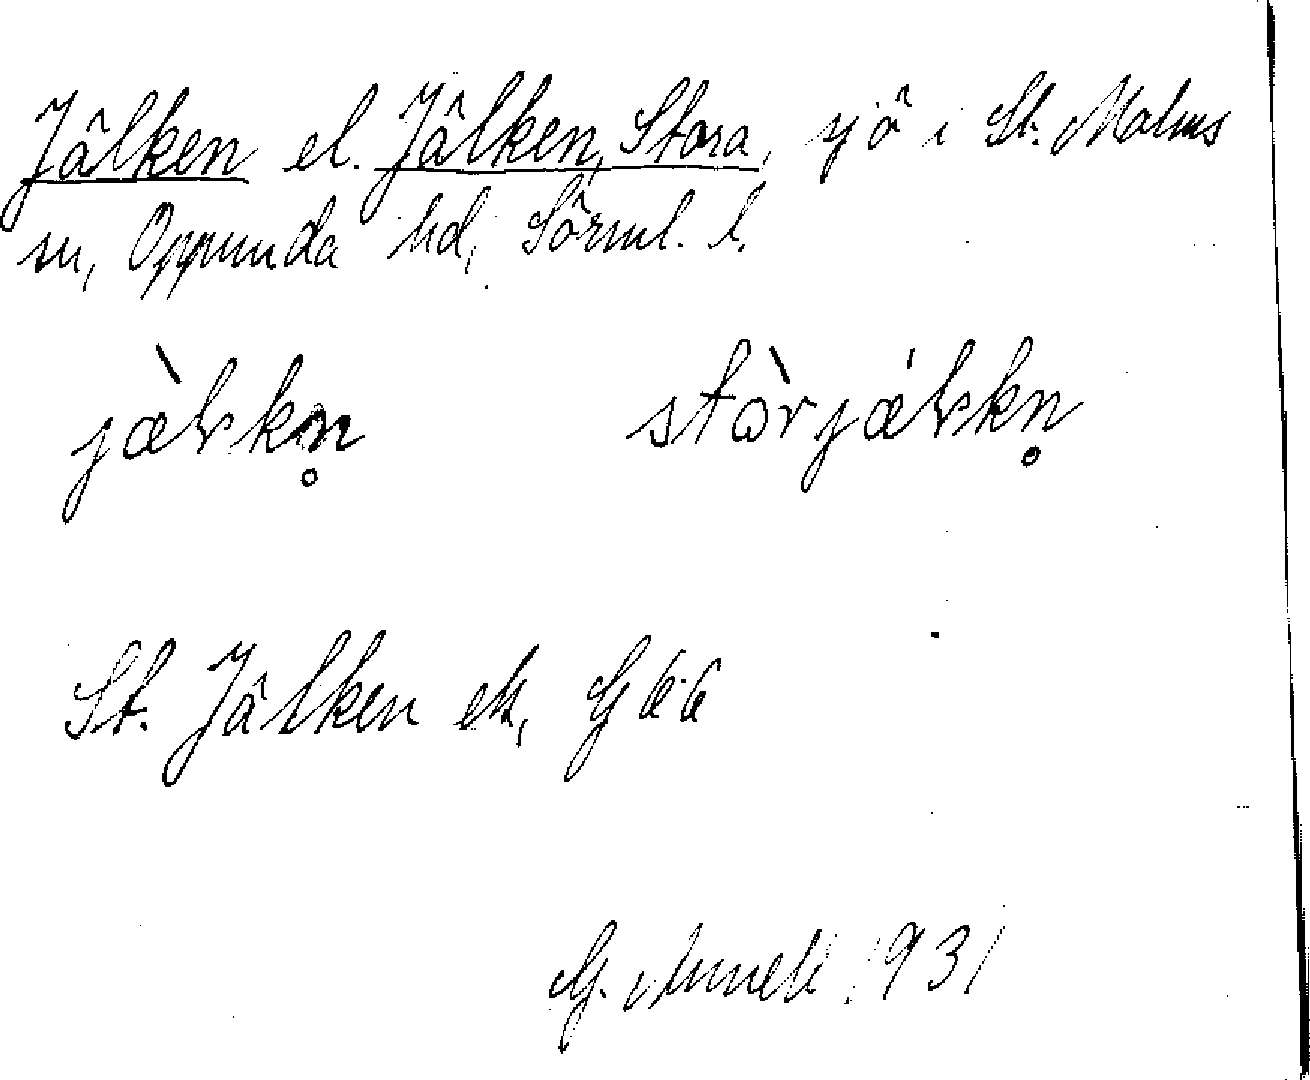 Jälken el. Jälken, Stora, sjö i St. Malms
sn, Oppunda hd, Sörml. l.
jæ̀lkn̥ stòrjǽlkn̥
St. Jälken ek, G 66
G. 1931